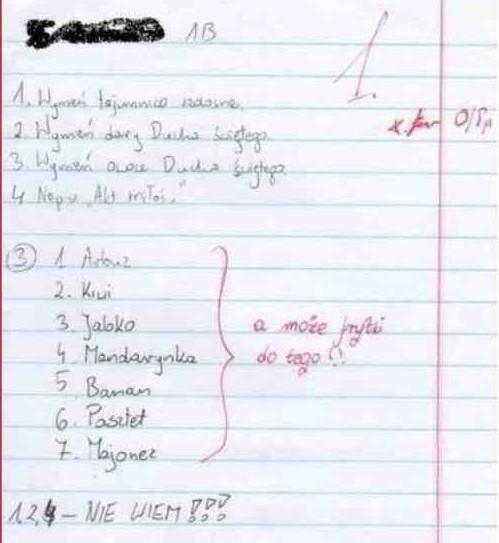 1B
1.
1. Wymień tajemnice radosne.
2. Wymień dary Ducha Świętego.
3. Wymień owoce Ducha Świętego.
4 Napisz "Akt miłości"
0/8p
3 1 Arbuz
2. Kiwi
3. Jabłko
4. Mandarynka
5 Banan
6. Pasztet
7. Majonez
a może frytki
do tego?!
1,2,4 – NIE WIEM !!!